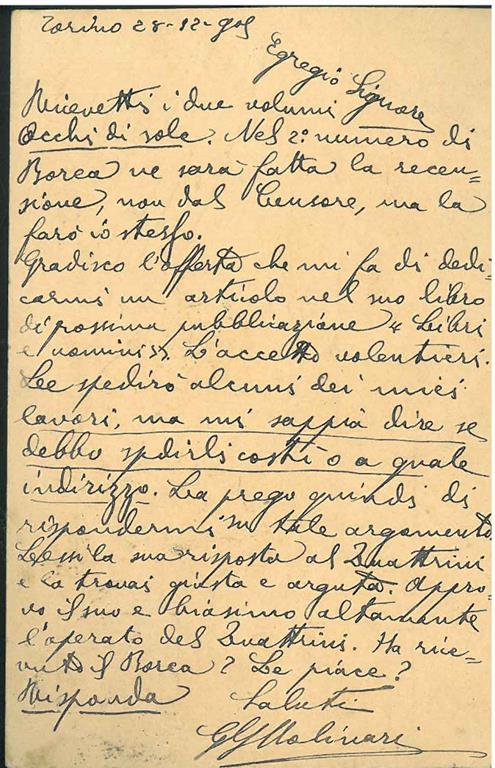 Torino 28-12-905
Egregio Signore
Ricevetti i due volumi
Occhi di sole. Nel 2° numero di
Borea ne sarà fatta la recen=
sione, non dal Censore, ma la
farò io stesso.
Gradisco l'offerta che mi fa di dedi=
carmi un articolo nel suo libro
di possima pubblicazione « Libri
e uomini ». L'accetto volentieri.
Le spedirò alcuni dei miei
lavori, ma mi sappia dire se
debbo spedirli costì o a quale
indirizzo. La prego quindi di
rispondermi su tale argomento.
Lessi la sua risposta al Quattrini
e la trovai giusta e arguta. Appro=
vo il suo e biasimo altamente
l'operato del Quattrini. Ha rice=
vuto il Borea? Le piace?
Risponda
Saluti
Molinari